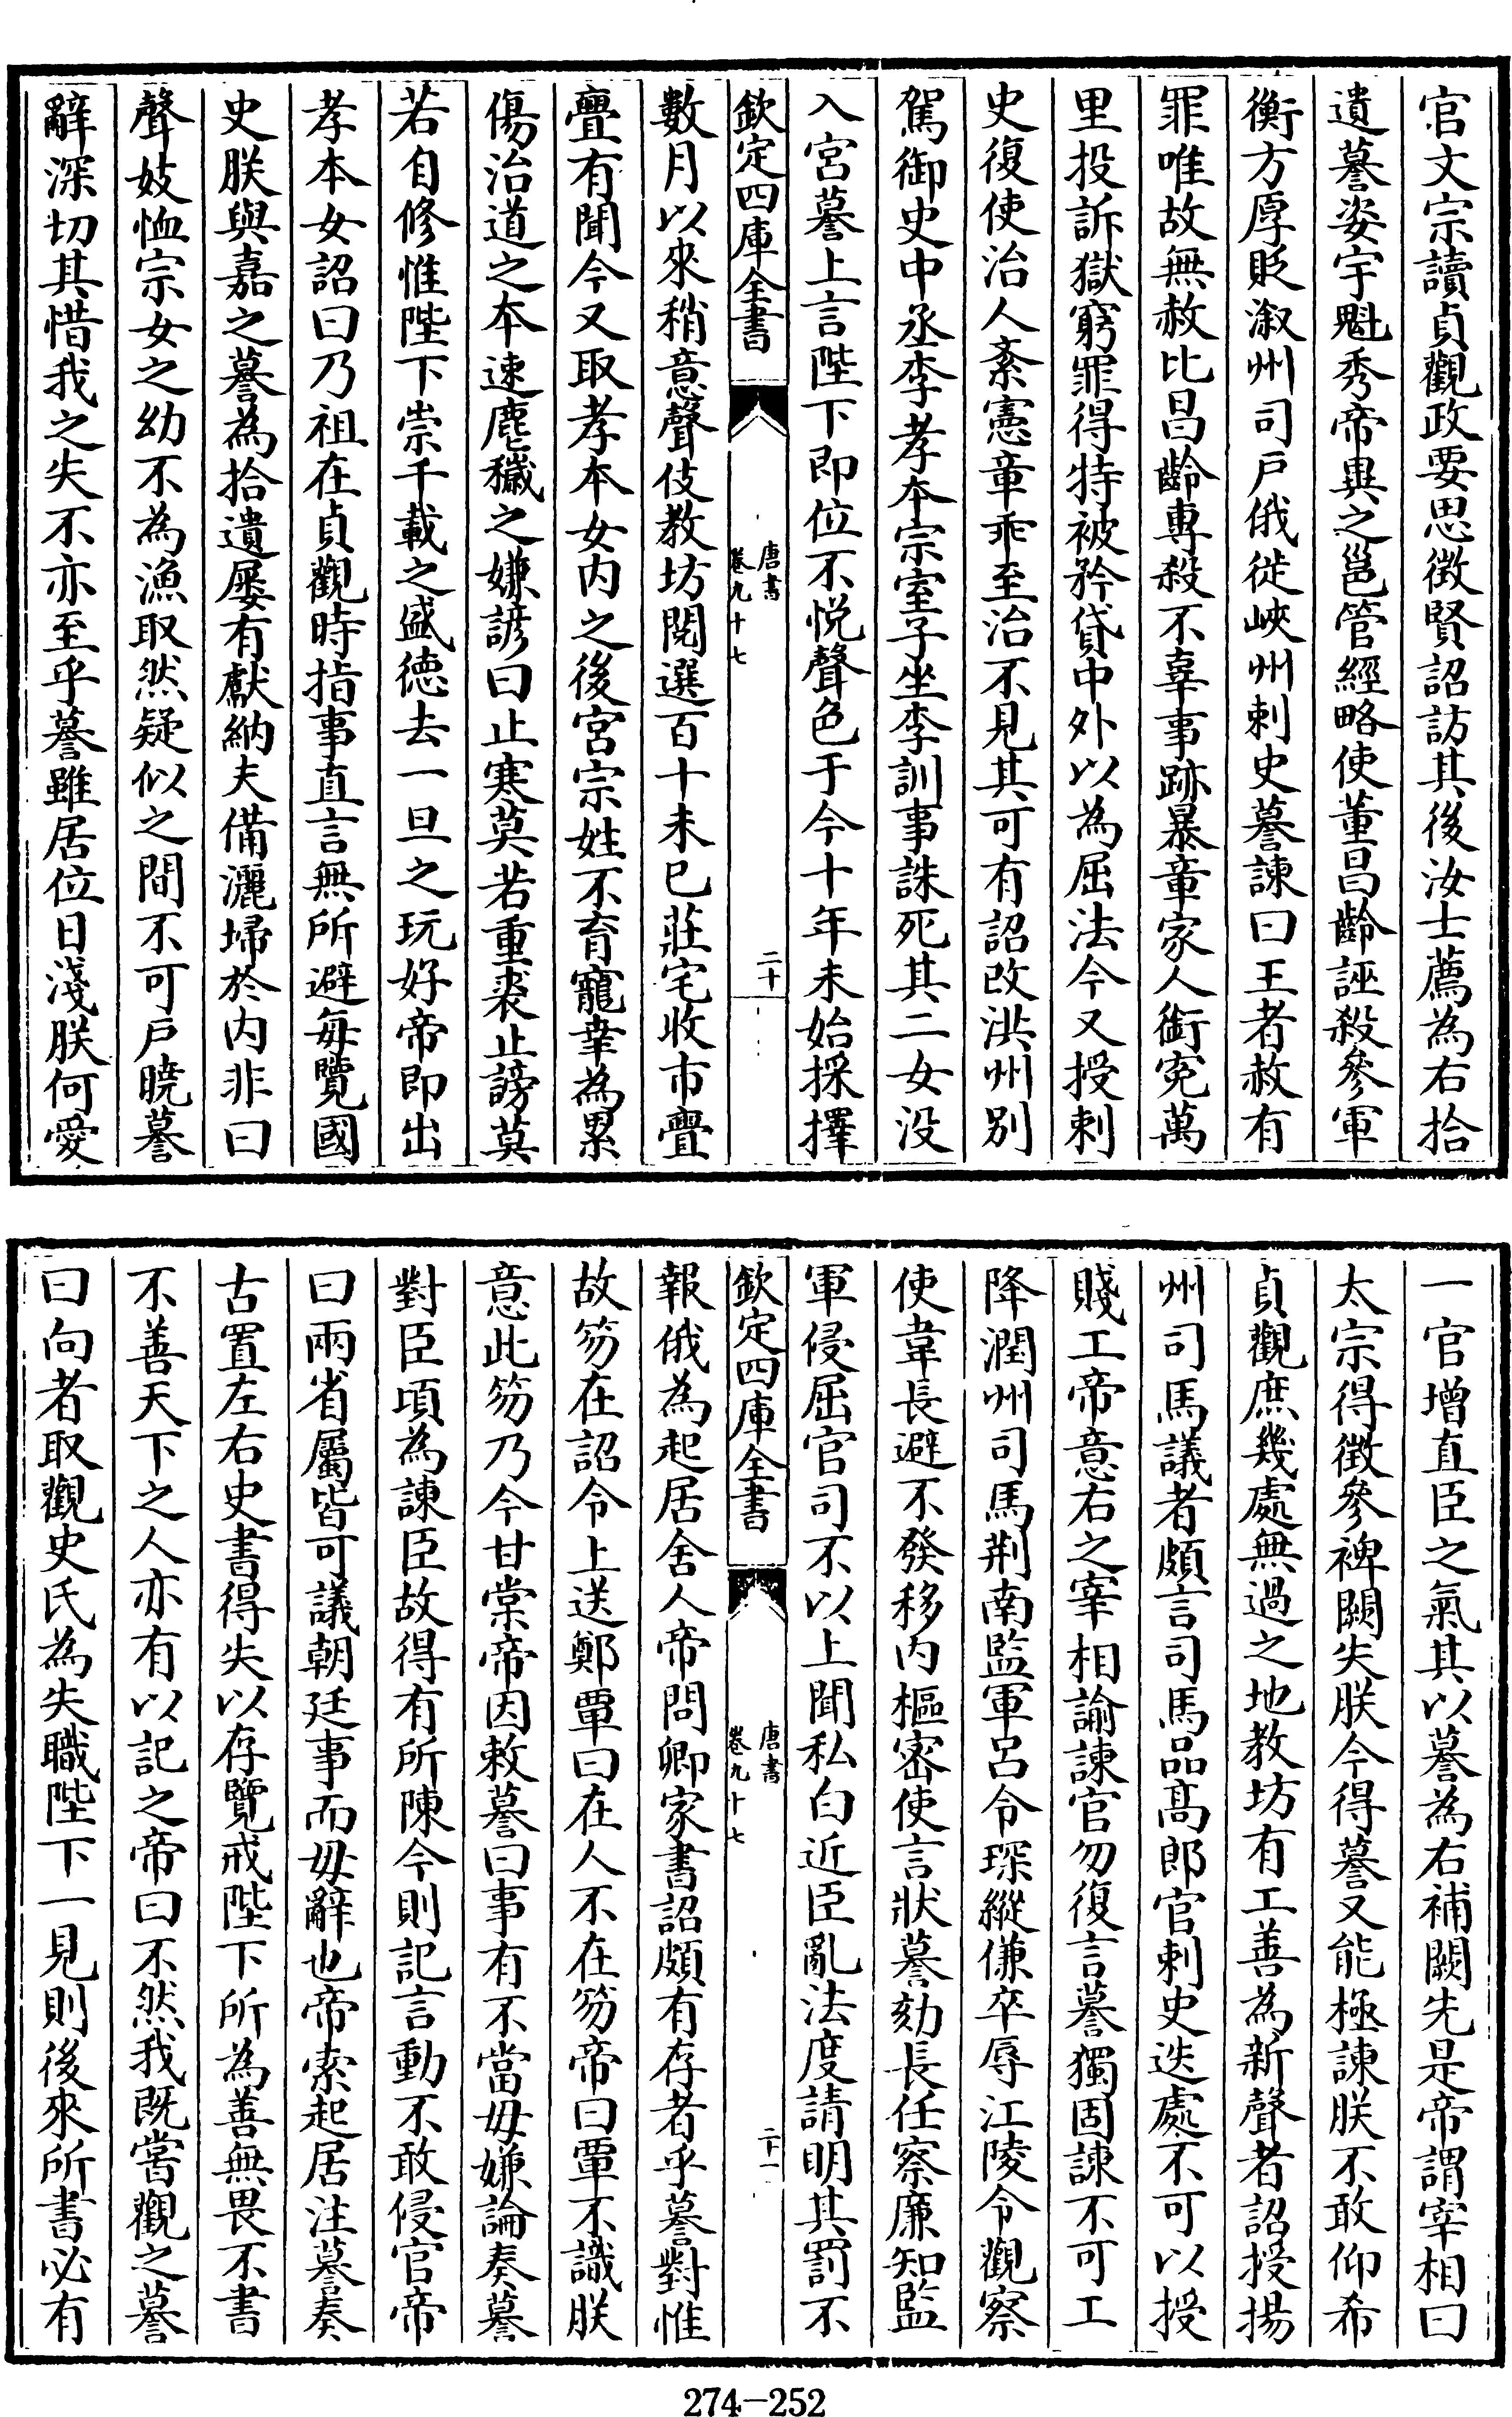 官文宗讀貞觀政要思徴賢詔訪其後汝士薦為右拾
遺謩姿宇魁秀帝異之邕管經略使董昌齡誣殺參軍
衡方厚貶溆州司戶俄徙峽州刺史謩諫曰王者赦有
罪唯故無赦比昌齡專殺不辜事跡暴章家人銜寃萬
里投訴獄窮罪得特被矜貸中外以為屈法今又授刺
史復使治人紊憲章乖至治不見其可有詔改洪州別
駕御史中丞李孝本宗室子坐李訓事誅死其二女没
入宮謩上言陛下即位不悦聲色于今十年未始採擇
欽定四庫全書
唐書
卷九十七
二十
數月以來稍意聲伎教坊閱選百十未已莊宅收市亹
亹有聞今又取孝本女内之後宮宗姓不育寵幸為累
傷治道之本速塵穢之嫌諺曰止寒莫若重裘止謗莫
若自修惟陛下崇千載之盛德去一旦之玩好帝即出
孝本女詔曰乃祖在貞觀時指事直言無所避每覽國
史朕與嘉之謩為拾遺屢有獻納夫備灑埽於内非曰
聲妓恤宗女之幼不為漁取然疑似之間不可戶曉謩
辭深切其惜我之失不亦至乎謩雖居位日淺朕何愛
一官增直臣之氣其以謩為右補闕先是帝謂宰相曰
太宗得徴參裨闕失朕今得謩又能極諫朕不敢仰希
貞觀庶幾處無過之地教坊有工善為新聲者詔授揚
州司馬議者頗言司馬品髙郎官刺史迭處不可以授
賤工帝意右之宰相諭諫官勿復言謩獨固諫不可工
降潤州司馬荆南監軍呂令琛縱傔卒辱江陵令觀察
使韋長避不發移内樞密使言狀謩劾長任察廉知監
軍侵屈官司不以上聞私白近臣亂法度請明其罰不
欽定四庫全書
唐書
卷九十七
二十一
報俄為起居舍人帝問卿家書詔頗有存者乎謩對惟
故笏在詔令上送鄭覃曰在人不在笏帝曰覃不識朕
意此笏乃今甘棠帝因敕謩曰事有不當毋嫌論奏謩
對臣頃為諫臣故得有所陳今則記言動不敢侵官帝
曰兩省屬皆可議朝廷事而毋辭也帝索起居注謩奏
古置左右史書得失以存覽戒陛下所為善無畏不書
不善天下之人亦有以記之帝曰不然我既嘗觀之謩
曰向者取觀史氏為失職陛下一見則後來所書必有
274-252